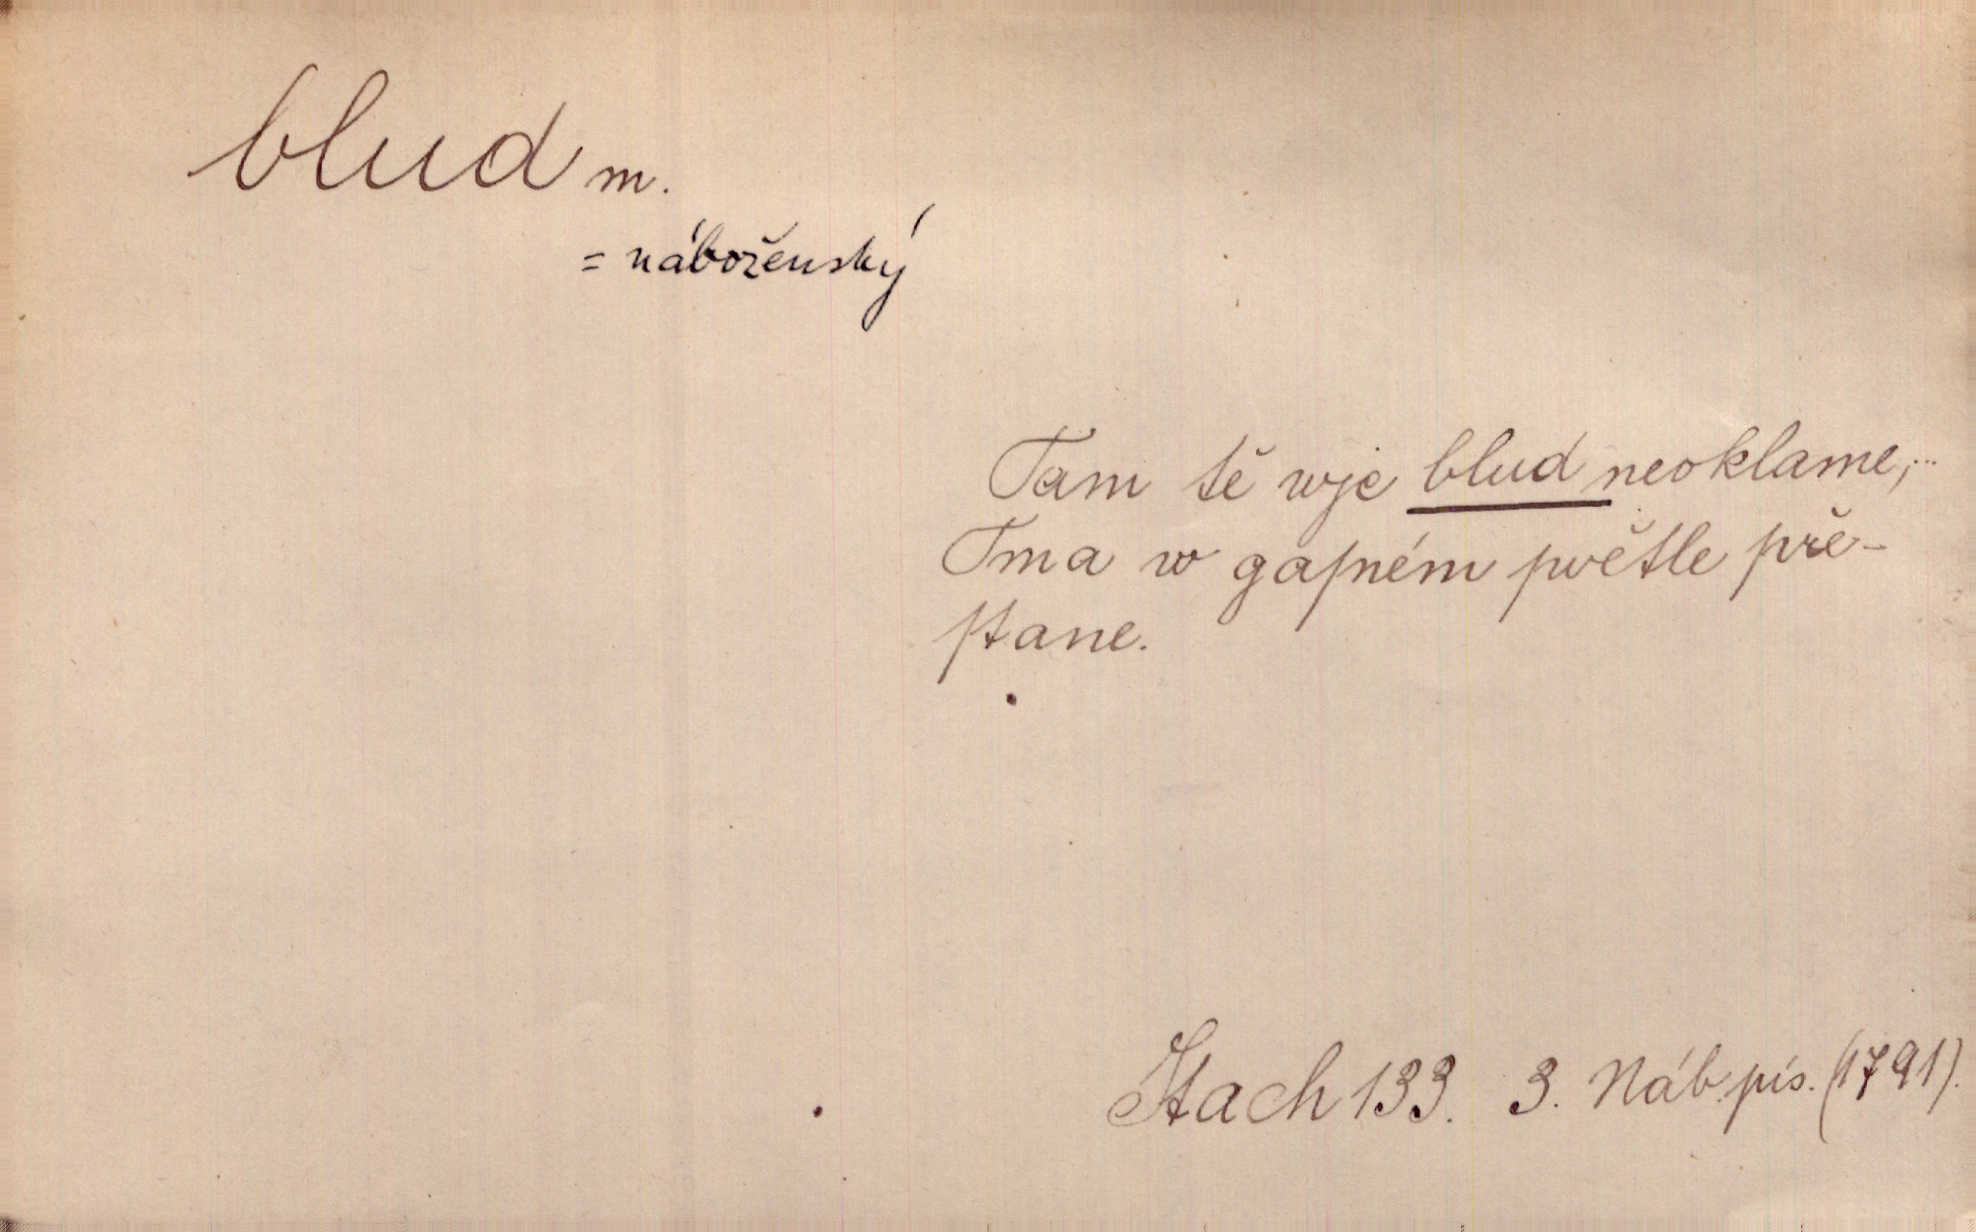 blud m.
= náboženský
Tam tě wjc blud neoklame,...
Tma w gaſném ſwětle pře-
ſtane.
Stach 133. 3. Náb. pís. (1791).